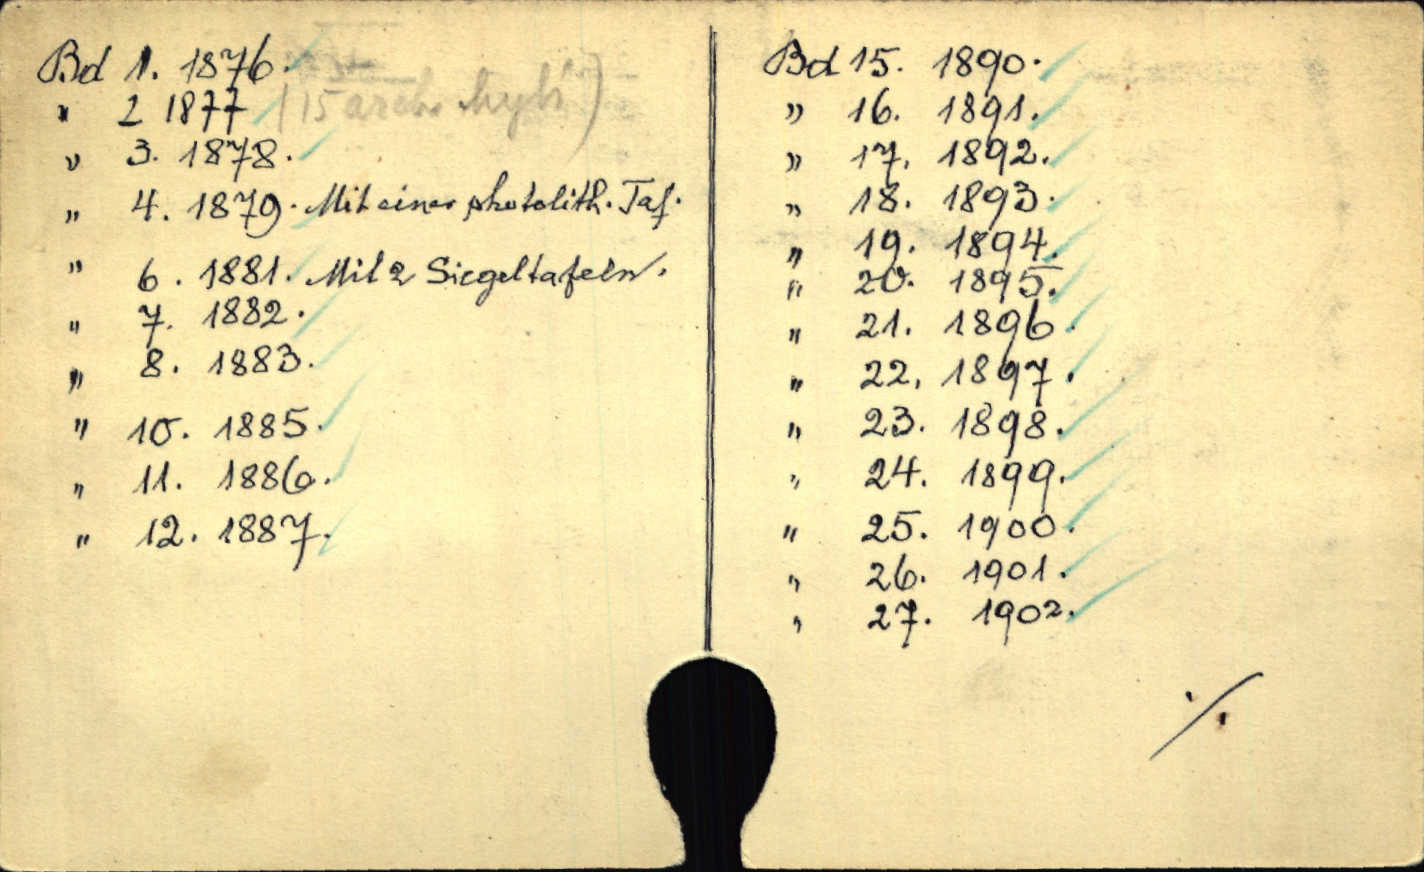 Bd 1. 1876.
" 2 1877 (15 arch.
" 3. 1878.
" 4. 1879. Mit einer photolith. Taf.
" 6. 1881. Mit 2 Siegeltafeln.
" 7. 1882.
" 8. 1883.
" 10. 1885.
" 11. 1886.
" 12. 1887.
Bd 15. 1890.
" 16. 1891.
" 17. 1892.
" 18. 1893.
" 19. 1894.
" 20. 1895.
" 21. 1896.
" 22. 1897.
" 23. 1898.
" 24. 1899.
" 25. 1900.
" 26. 1901.
" 27. 1902.
./.